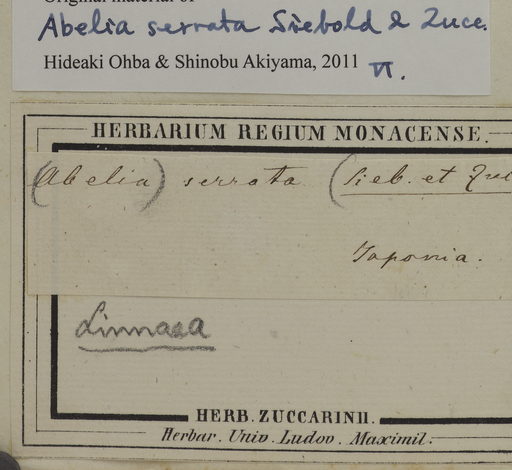 Original material of
Abelia serrata Siebold & Zucc.
Hideaki Ohba & Shinobu Akiyama, 2011 VI.
HERBARIUM REGIUM MONACENSE.
(Abelia) serrata (Sieb. et Zuc
Japonia.
Linnaea
HERB. ZUCCARINII.
Herbar. Univ. Ludov. Maximil.